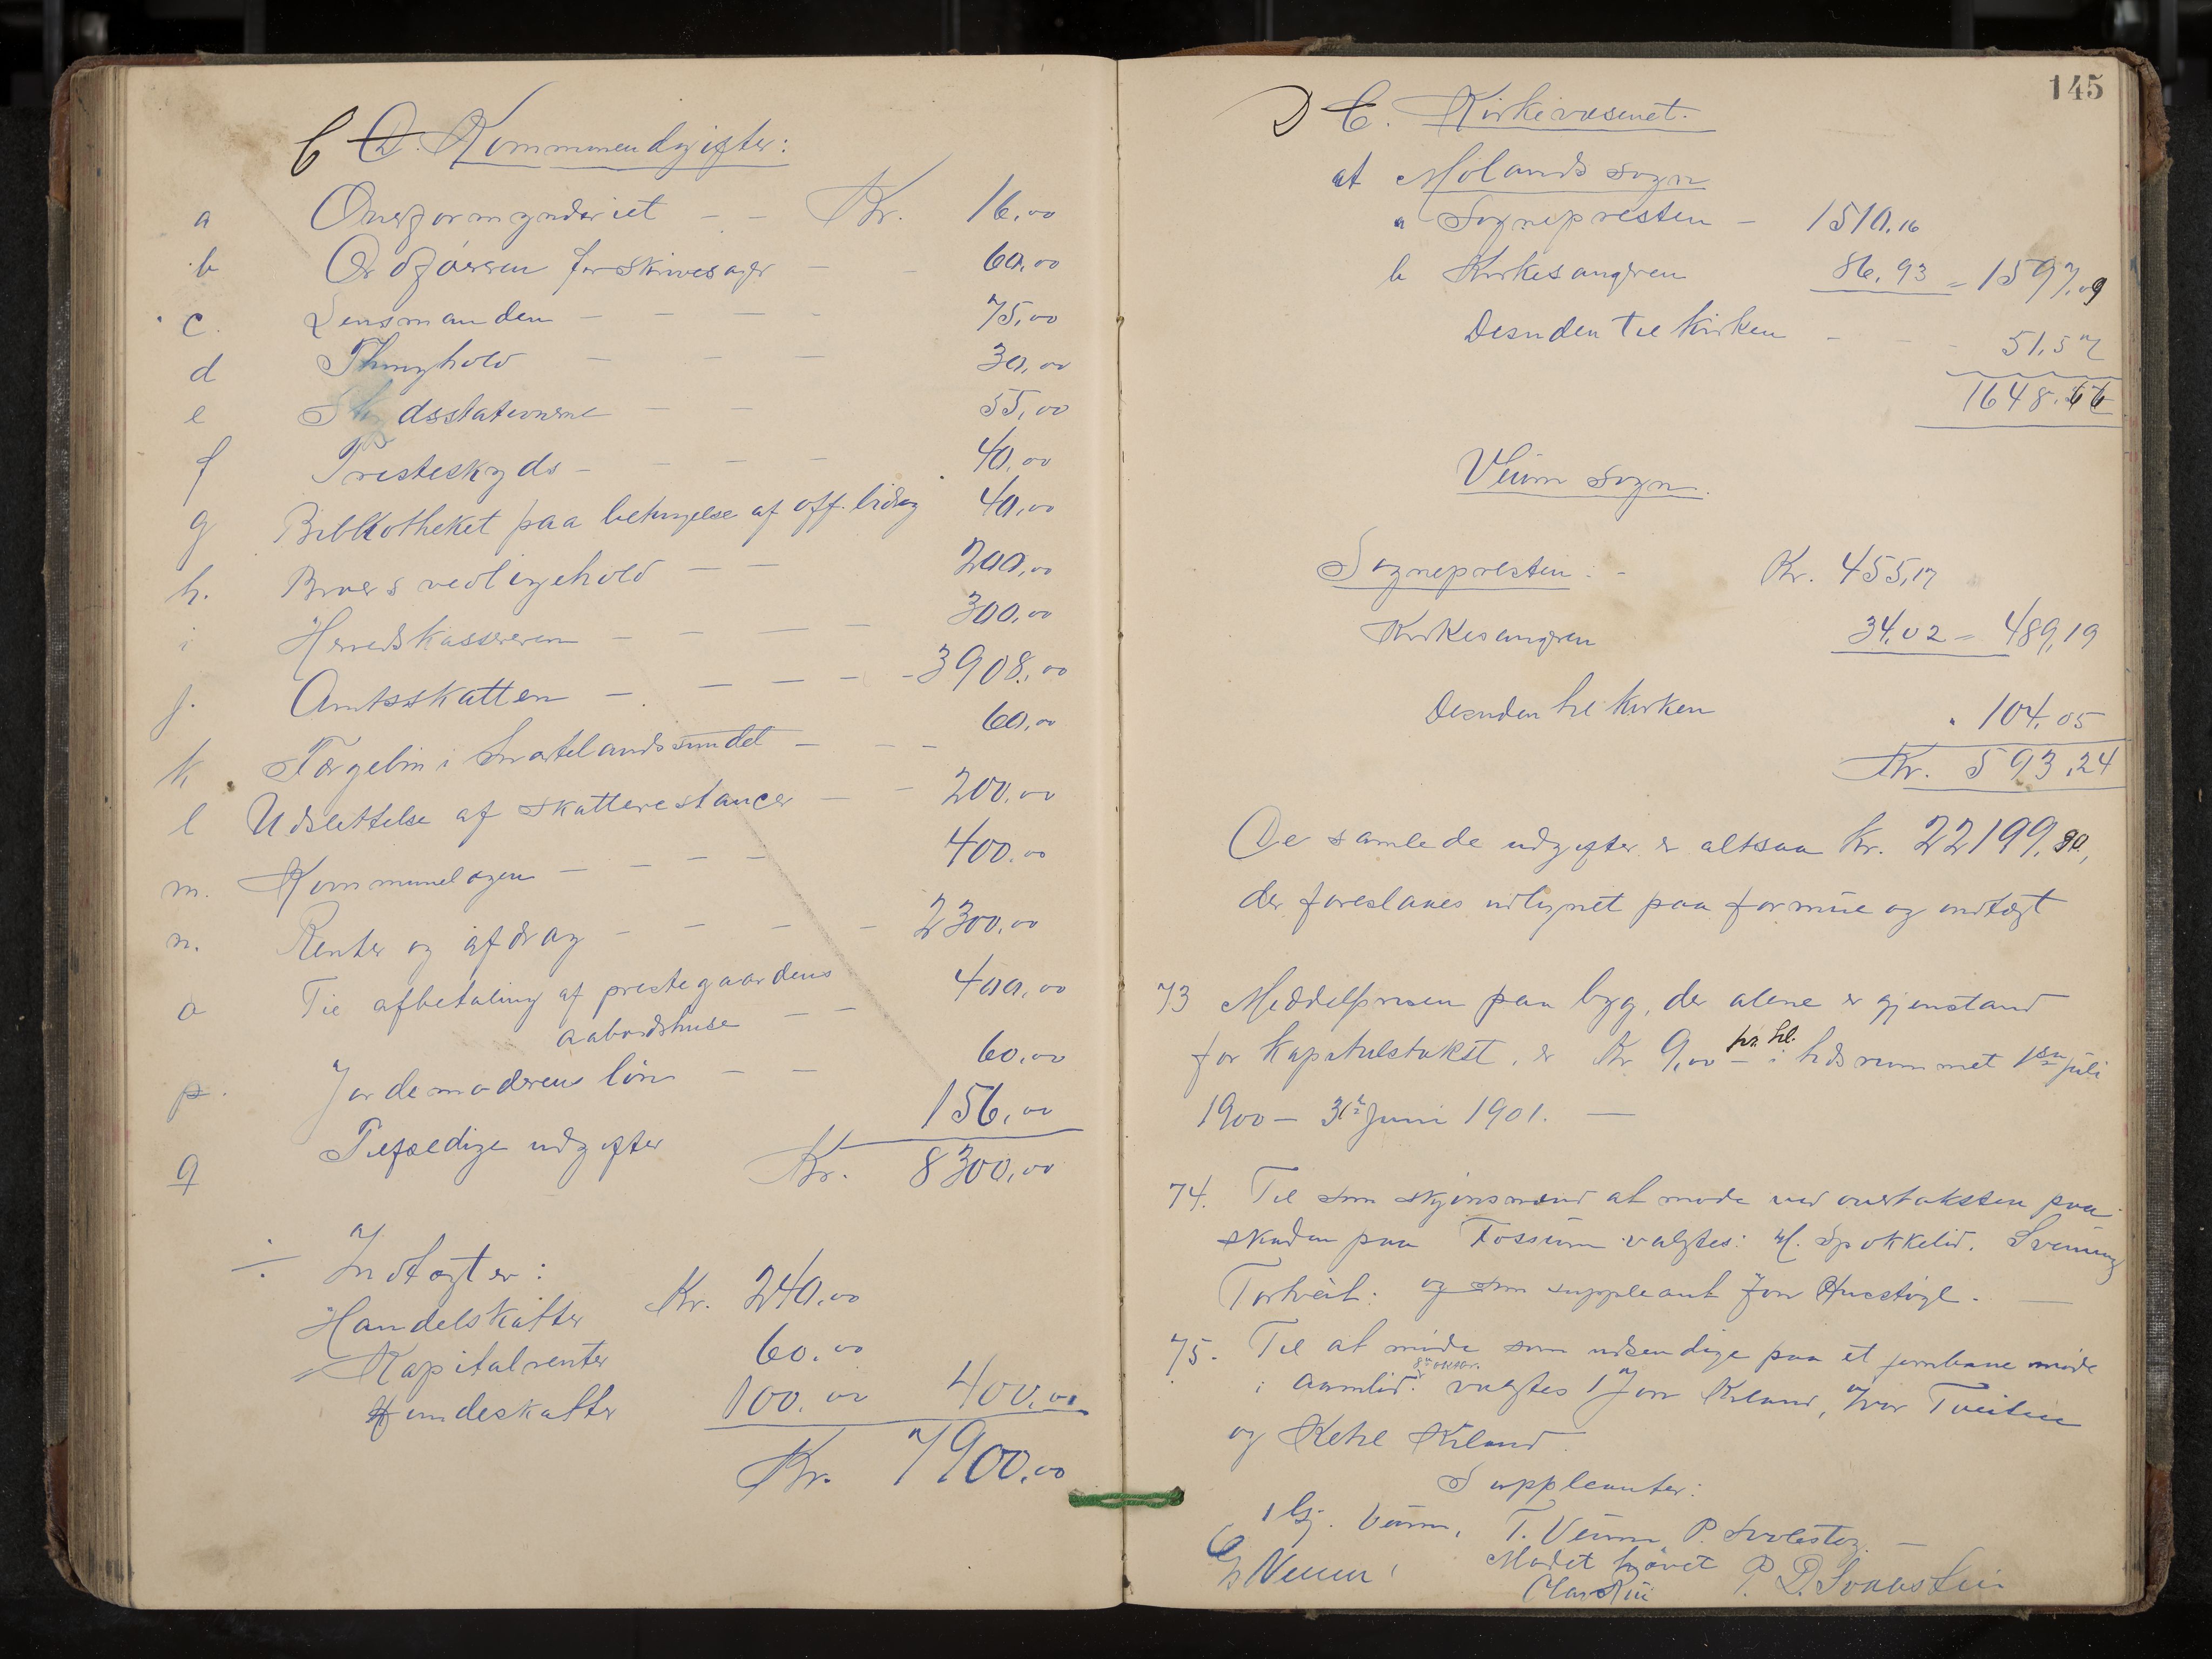 C D. Kommunendgifter:
a Overformynderiet - - Kr. 16,00
b Ordføreren for skrivesager - - 60,00
c. Lensmanden - - - - 75,00
d Thinghold - - - 30,00
e dsstationerne - - 55,00
f Presteskyds - - - - 40,00
g Bibliotheket paa betingelse af off. bidrag 40,00
h. Broers vedligehold - - 200,00
i Herredskassereren - - - - 300,00
j. Amtsskatten - - - - - 3908,00
k Færgeløn i sundet - - - 60,00
l Udslettelse af skatterestancer - - 200,00
m. Kommunelægen - - - - 400,00
n. Renter og afdrag - - - - 2300,00
o Til afbetaling af prestegaardens
aabodshuse - - 400,00
p. Jordemoderens løn - - 60,00
q Tilfældige udgifter 156,00
Kr. 8300,00
÷ Indtægter:
Handelskatter Kr. 240,00
Kapitalrenter 60,00
Hundeskatter 100,00 400,00
Kr. 7900,00
145
D C. Kirkevæsenet.
at Molands sogn
a Sognepresten - 1510,16
b Kirkesangeren 86,93 = 1597,09
Desuden til kirken - - - 51,57
1648.66
Veum sogn.
Sognepresten: - Kr. 455,17
Kirkesangeren 34,02 = 489,19
Desuden til kirken " 104,05
Kr. 593,24
De samlede udgifter er altsaa kr. 22199,90,
der foreslaaes udlignet paa formue og indtægt
73 Middelprisen paa byg, der alene er gjenstand
for kapitulstakst, er Kr 9,00 pr. hl. i tidsrummet 1ste juli
1900 - Juni 1901. -
74. Til som skjønsmænd at møde ved overtaksten paa
skaden paa Fossum valgtes: H. Spokkelid. Svenung
Tortveit. og som suppleant Jon -
75. Til at møde som udsendige paa et jernbane møde
i Aamlid 8de oktbr. valgtes 1 Jon Kiland, Ivar Tveiten
og Ketil Kiland.
Suppleanter:
1 Gj. Veum, T. Veum P. -
G Veum Mødet hævet